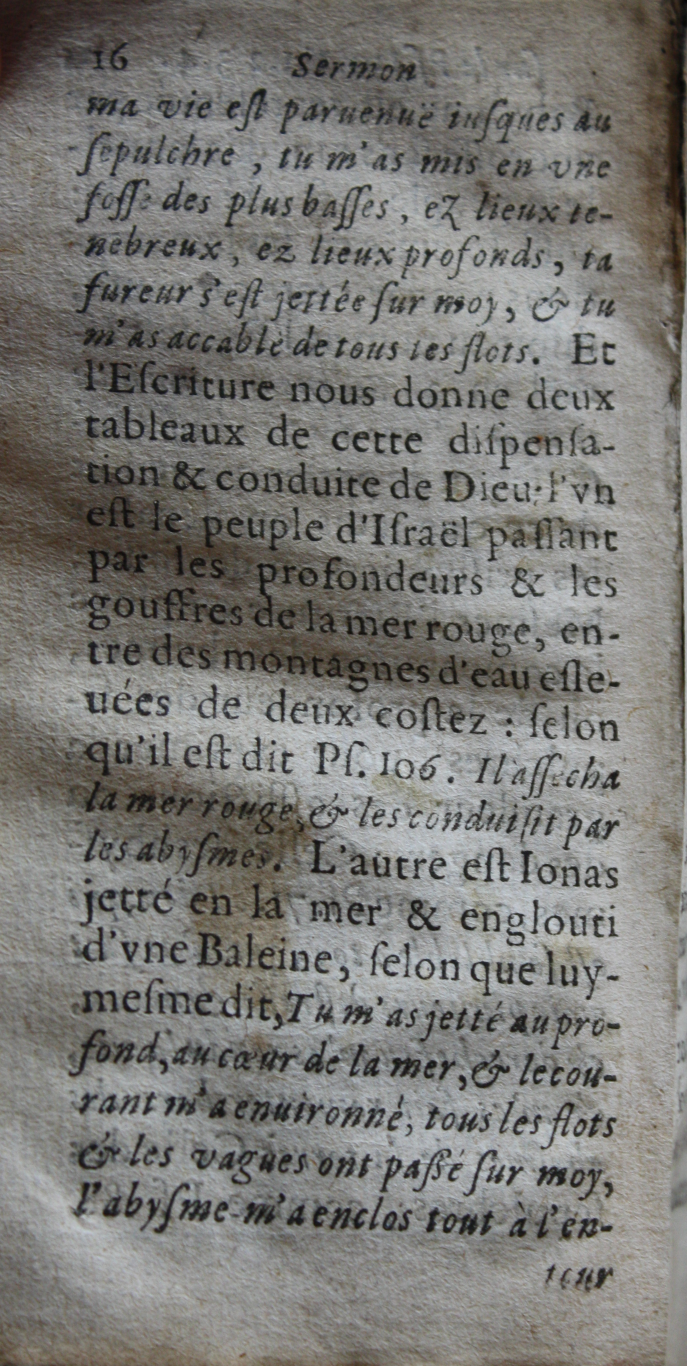 16 Sermon
ma vie eſt paruenuë iuſques au
ſepulchre, tu m'as mis en vne
foſſe des plus baſſes, ez lieux te-
nebreux, ez lieux profonds, ta
fureur s'eſt jettée ſur moy, & tu
m'as accablé de tous tes flots. Et
l'Eſcriture nous donne deux
tableaux de cette diſpenſa-
tion & conduite de Dieu: l'vn
eſt le peuple d'Iſraël paſſant
par les profondeurs & les
gouffres de la mer rouge, en-
tre des montagnes d'eau eſle-
uées de deux coſtez : ſelon
qu'il eſt dit Pſ. 106. Il aſſecha
la mer rouge, & les conduiſit par
les abyſmes. L'autre eſt Ionas
jetté en la mer & englouti
d'vne Baleine, ſelon que luy-
meſme dit, Tu m'as jetté au pro-
fond, au cœur de la mer, & le cou-
rant m'a enuironné, tous les flots
& les vagues ont paſſé ſur moy,
l'abyſme m'a enclos tout à l'en-
tour